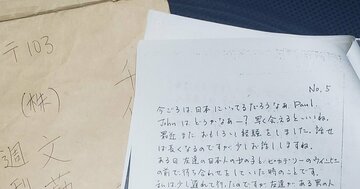 〒103
(株)
週
文
No.5
今ごろは日本にいってるだろうなぁ、Paul.
Johnはどうかなぁー? 早く会えるといいね。
最近またおもしろい経験をしました。話せ
ば長くなるのですが少しお話しますね。
ある日友達の日本人の女の子と
の前で待ち合わせをしていた時のことです。
私は少し遅れて行ったのですが友達がある男の人